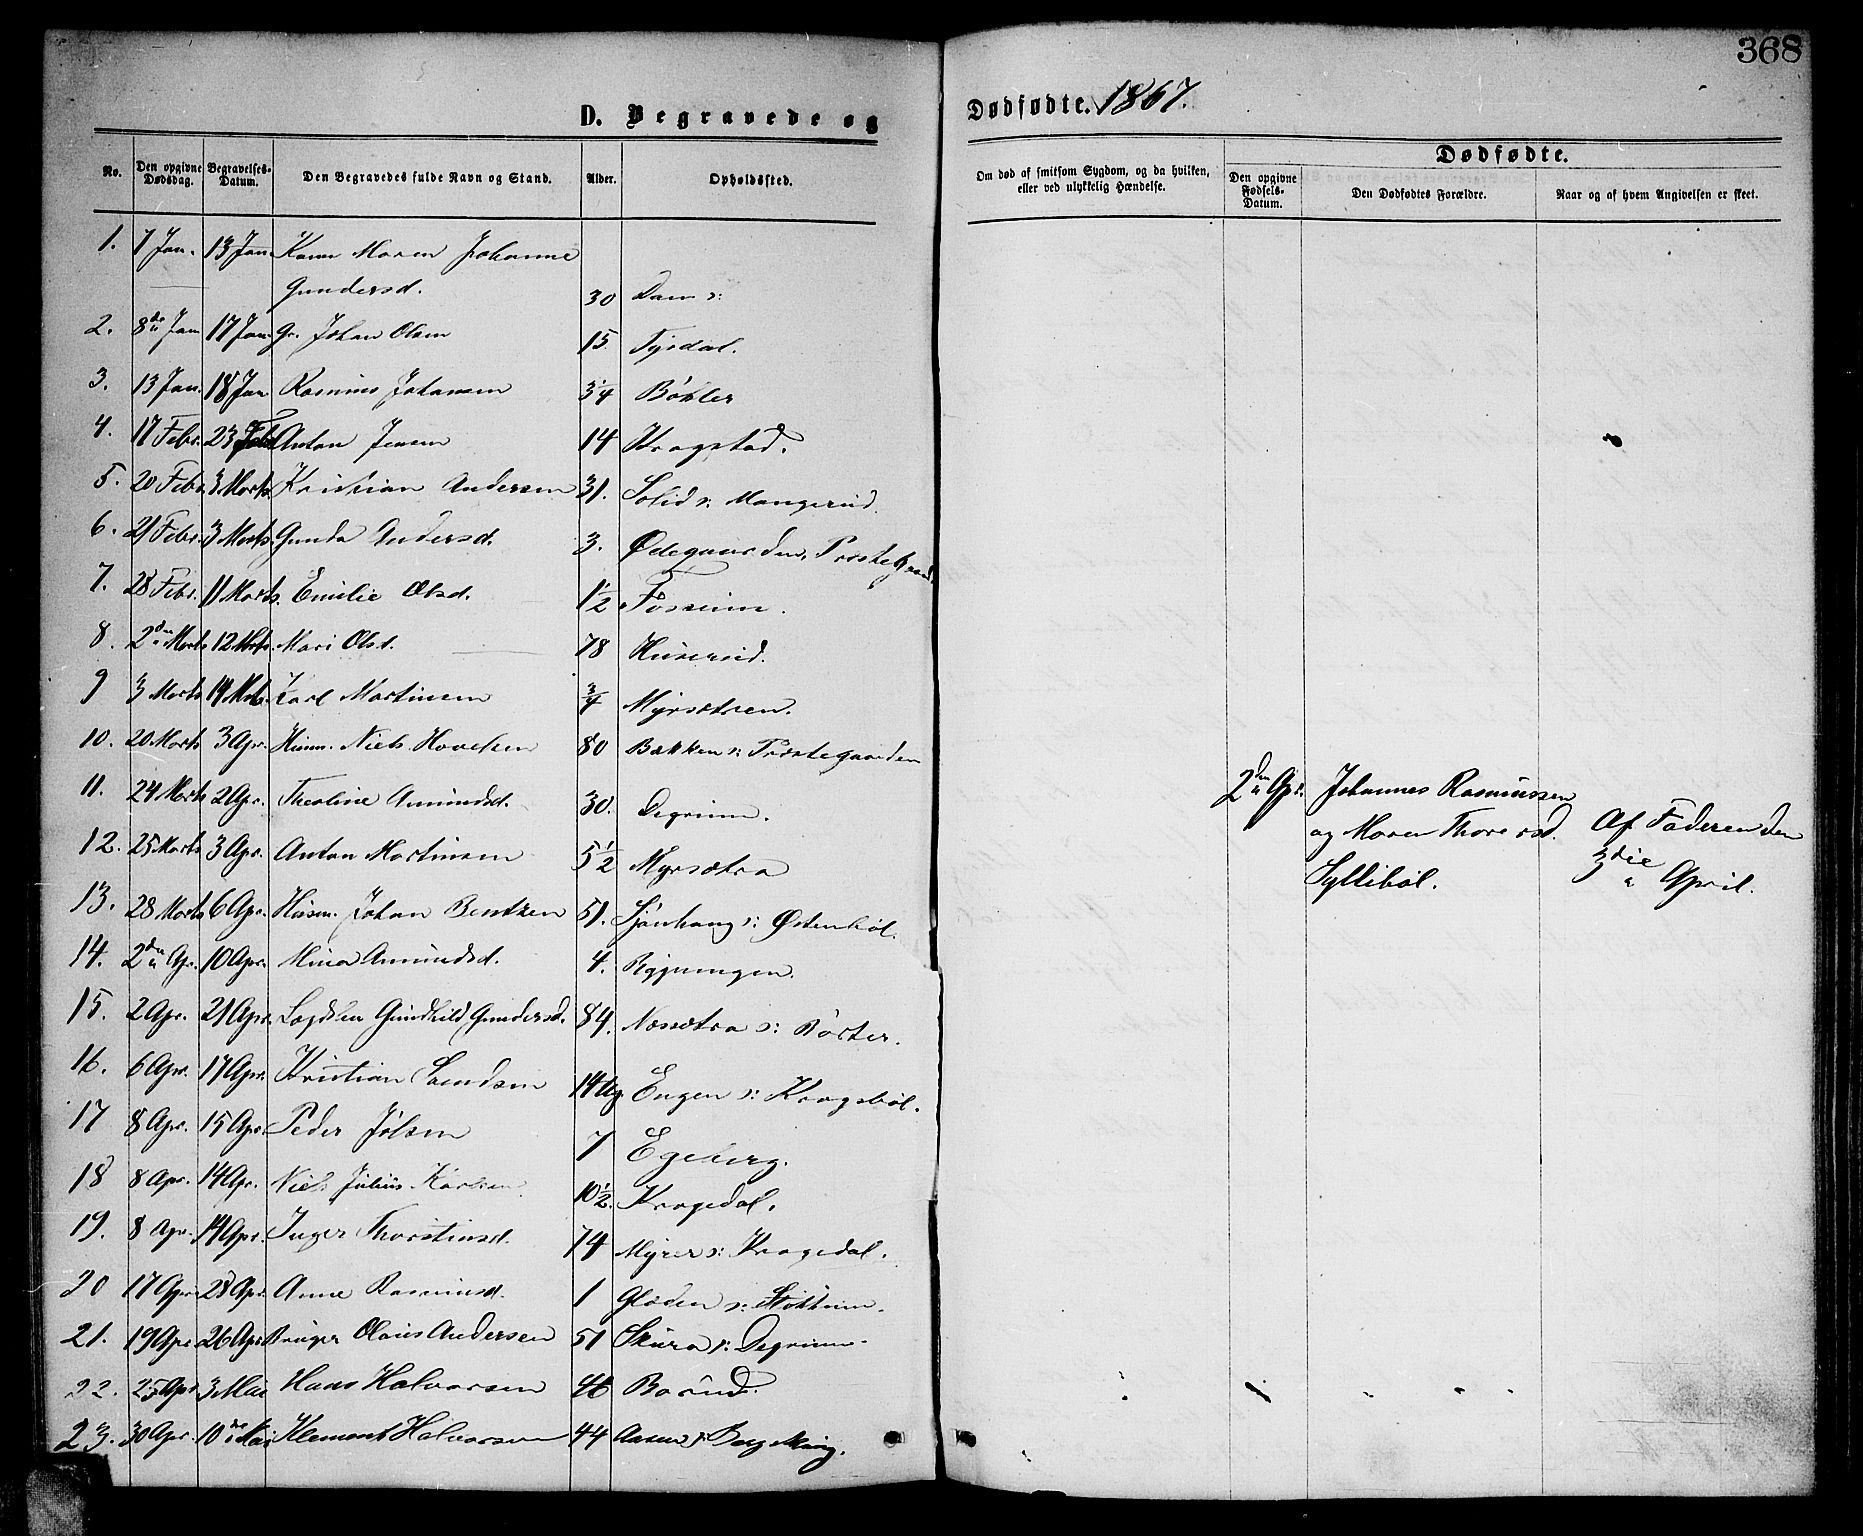 368
D. Begravede og Dødfødte. 1867.
No. Den opgivne Dødsdag. Begravelses-Datum. Den Begravedes fulde Navn og Stand. Alder. Opholdssted. Om død af smitsom Sygdom, og da hvilken, eller ved ulykkelig Hændelse. Dødfødte. Den opgivne Fødsels-Datum. Den Dødfødtes Forældre. Naar og af hvem Angivelsen er skeet.
1. 7 Jan. 13 Jan. Karen Maren Johanne
Gundersd. 30 Dam s:
2. 8de Jan 17 Jan. Johan Olsen 15 Tysdal.
3. 13 Jan. 18 Jan Rasmus Johansen 3/4 Bøhler
4. 17 Febr. 23 Feb Anton Jensen 14 Kragstad.
5. 20 Febr. 3 Marts. Kristian Andersen 31. Solid s: Mangerud.
6. 21 Febr. 3 Marts. Gunda Andersd. 3. Ødegaarden, Prestegaard.
7. 28 Febr. 11 Marts. Emilie Olsd. 1 1/2 Fosseim.
8. 2den Marts 12 Mrts. Mari Olsd. 78 Huserud.
9 3 Marts 14 Mrts. Karl Martinsen 3/4 Myrsætren.
10. 20 Marts 3 Apr. Husm. Niels Hovelsen 80 Bakken s: Præstegaarden
11. 24 Marts 2 Apr. Theoline Amundsd. 30. Degrum.
12. 25 Marts 3 Apr. Anton Martinsen 5 1/2 Myrsætra
13. 28 Marts 6 Apr. Husm. Johan Bentzen 51. Sjønhaug s: Østenbøl.
14. 2den Apr. 10 Apr. Mina Amundsd. 4. Bygningen.
15. 2 Apr. 21 Apr. Lægdslem Gundhild Gundersd. 84. Næssætra s: Børter.
16. 6 Apr. 17 Apr. Kristian 14 Dg. Engen s: Kragsbøl.
17 8 Apr. 15 Apr. Peder 7 Egeberg.
18 8 Apr. 14 Apr. Niels Julius Karlsen 10 1/2. Kragedal.
19. 8 Apr. 14 Apr. Inger Thorstensd. 74 Myrer s: Kragedal.
20 17 Apr. 28 Apr. Anne Rasmusd. 1 Glæden s:
21. 19 Apr 26 Apr. Bruger Olaus Andersen 51 Skura s: Degrum.
22. 25 Apr 3 Mai Hans Halvorsen 46 Bærud.
23. 30 Apr. 10de Mai Klement Halvorsen 44 Aasen s:
2den Apr. Johannes Rasmussen
og Maren Thoresd.
Syllibøl.
Af Faderen den
3die April.